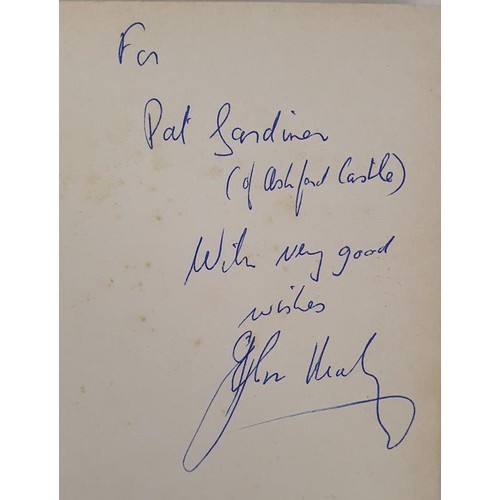 For
Pat Gardiner
(of Ashford Castle)
With very good
wishes